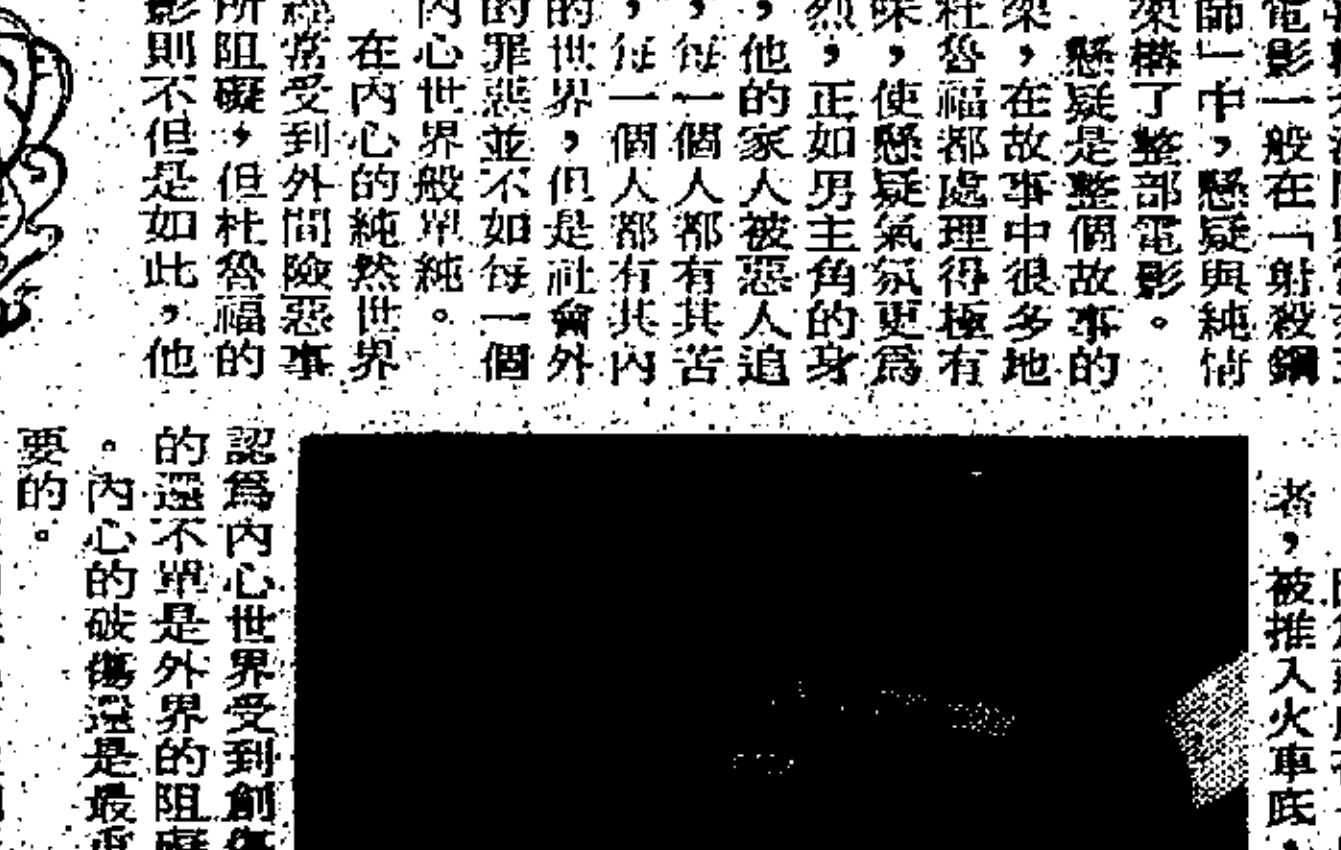 電影一般在「射殺鋼
師」中，懸疑與純情
架構了整部電影。
懸疑是整個故事的
架，在故事中很多地
杜魯福都處理得極有
味，使懸疑氣氛更爲
烈，正如男主角的身
，他的家人被惡人追
，每一個人都有其苦
，每一個人都有其內
的世界，但是社會外
的罪惡並不如每一個
內心世界般單純。
在內心的純然世界
經常受到外間險惡事
所阻礙，但杜魯福的
影則不但是如此，他
者，被推入火車底，
認爲內心世界受到創傷
的還不單是外界的阻礙
。內心的破傷還是最重
要的。